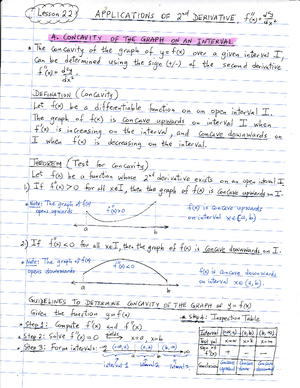 Lesson 22
APPLICATIONS OF 2nd DERIVATIVE, f''(x) = d²y/dx²
A. CONCAVITY OF THE GRAPH ON AN INTERVAL
* The concavity of the graph of y=f(x) over a given interval I,
can be determined using the sign (+/-) of the second derivative
f''(x) = d²y/dx²
DEFINITION (Concavity)
Let f(x) be a differentiable function on an open interval I.
The graph of f(x) is concave upwards on interval I when
f'(x) is increasing on the interval, and concave downwards on
I when f'(x) is decreasing on the interval.
THEOREM (Test for Concavity)
Let f(x) be a function whose 2nd derivative exists on an open interval I
1) If f''(x) > 0 for all x∈I, then the graph of f(x) is concave upwards on I.
* Note: The graph of f(x)
opens upwards
f''(x)>0
f(x) is concave upwards
on interval x∈(a, b)
a b
2) If f''(x) < 0 for all x∈I, then the graph of f(x) is concave downwards on I.
* Note: The graph of f(x)
opens downwards
f''(x)<0
f(x) is concave downwards
on interval x∈(a, b).
a b
GUIDELINES TO DETERMINE CONCAVITY OF THE GRAPH ON y=f(x)
Given the function y=f(x)
* Step 1: Compute f'(x) and f''(x)
* Step 2: Solve f''(x)=0 → x=a, x=b
* Step 3: Form intervals: (-∞,a) (a,b) (b,∞)
a b
interval 1 interval 2 interval 3
* Step 4: Inspection Table
Interval (-∞,a) (a,b) (b,∞)
Test val
Sign of f''(x) + - +
Conclusion Concave upward Concave down Concave upward